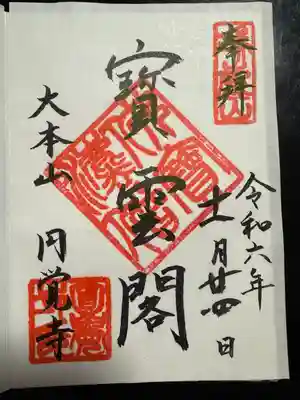 奉拝
令和六年
十一月廿四日
寶雲閣
大本山 円覚寺